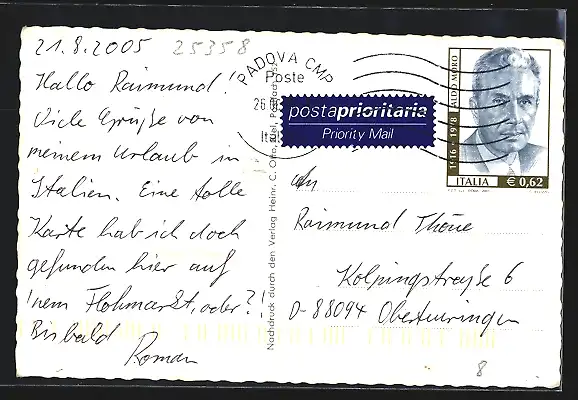 21.8.2005 25358
Hallo Raimund!
Viele Grüße von
meinem Urlaub in
Italien. Eine tolle
Karte hab ich doch
gefunden hier auf
'nem Flohmarkt, oder?!
Bis bald
Roman
PADOVA CMP
Poste
26.08
Ita
postaprioritaria
Priority Mail
ALDO MORO
1916 - 1978
ITALIA € 0,62
Nachdruck durch den Verlag Heinr. C. Otto
An
Raimund Thöne
Kolpingstraße 6
D-88094 Oberteuringen
8